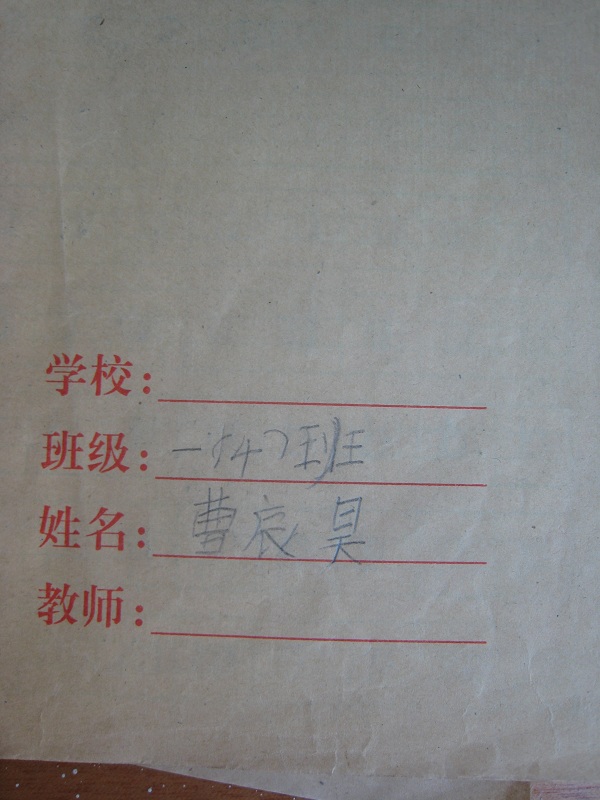 学校:
班级: 一(4)班
姓名: 曹宸昊
教师: